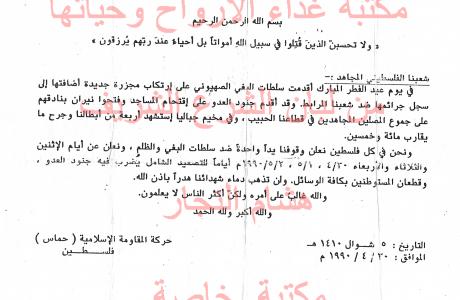 مكتبة غذاء الارواح وحياتها
بسم الله الرحمن الرحيم
« ولا تحسبن الذين قتلوا في سبيل الله أمواتاً بل أحياءً عند ربّهم يُرزقون »
شعبنا الفلسطيني المجاهد :-
في يوم عيد الفطر المبارك أقدمت سلطات البغي الصهيوني على إرتكاب مجزرة جديدة أضافتها إلى
سجل جرائمها ضد شعبنا المرابط. وقد أقدم جنود العدو على إقتحام المساجد وفتحوا نيران بنادقهم
على جموع المصلين المجاهدين في قطاعنا الحبيب ، وفي مخيم جباليا إستشهد أربعة من أبطالنا وجرح ما
يقارب مائة وخمسين.
ونحن في كل فلسطين نعلن وقوفنا يداً واحدةً ضد سلطات البغي والظلم ، ونعلن عن أيام الإثنين
والثلاثاء والأربعاء ٤/٣٠ ، ٥/١ ، ٥/٢/١٩٩٠م أياماً للتصعيد الشامل يُضرب فيه جنود العدو ،
وقطعان المستوطنين بكافة الوسائل. ولن تذهب دماء شهدائنا هدراً بإذن الله.
والله غالبٌ على أمره ولكنّ أكثر الناس لا يعلمون.
والله أكبر ولله الحمد
هشام النجار
التاريخ : ٥ شوال ١٤١٠ هـ
الموافق : ٣٠ / ٤ / ١٩٩٠ م
حركة المقاومة الإسلامية ( حماس )
فلسطين
مكتبة خاصة